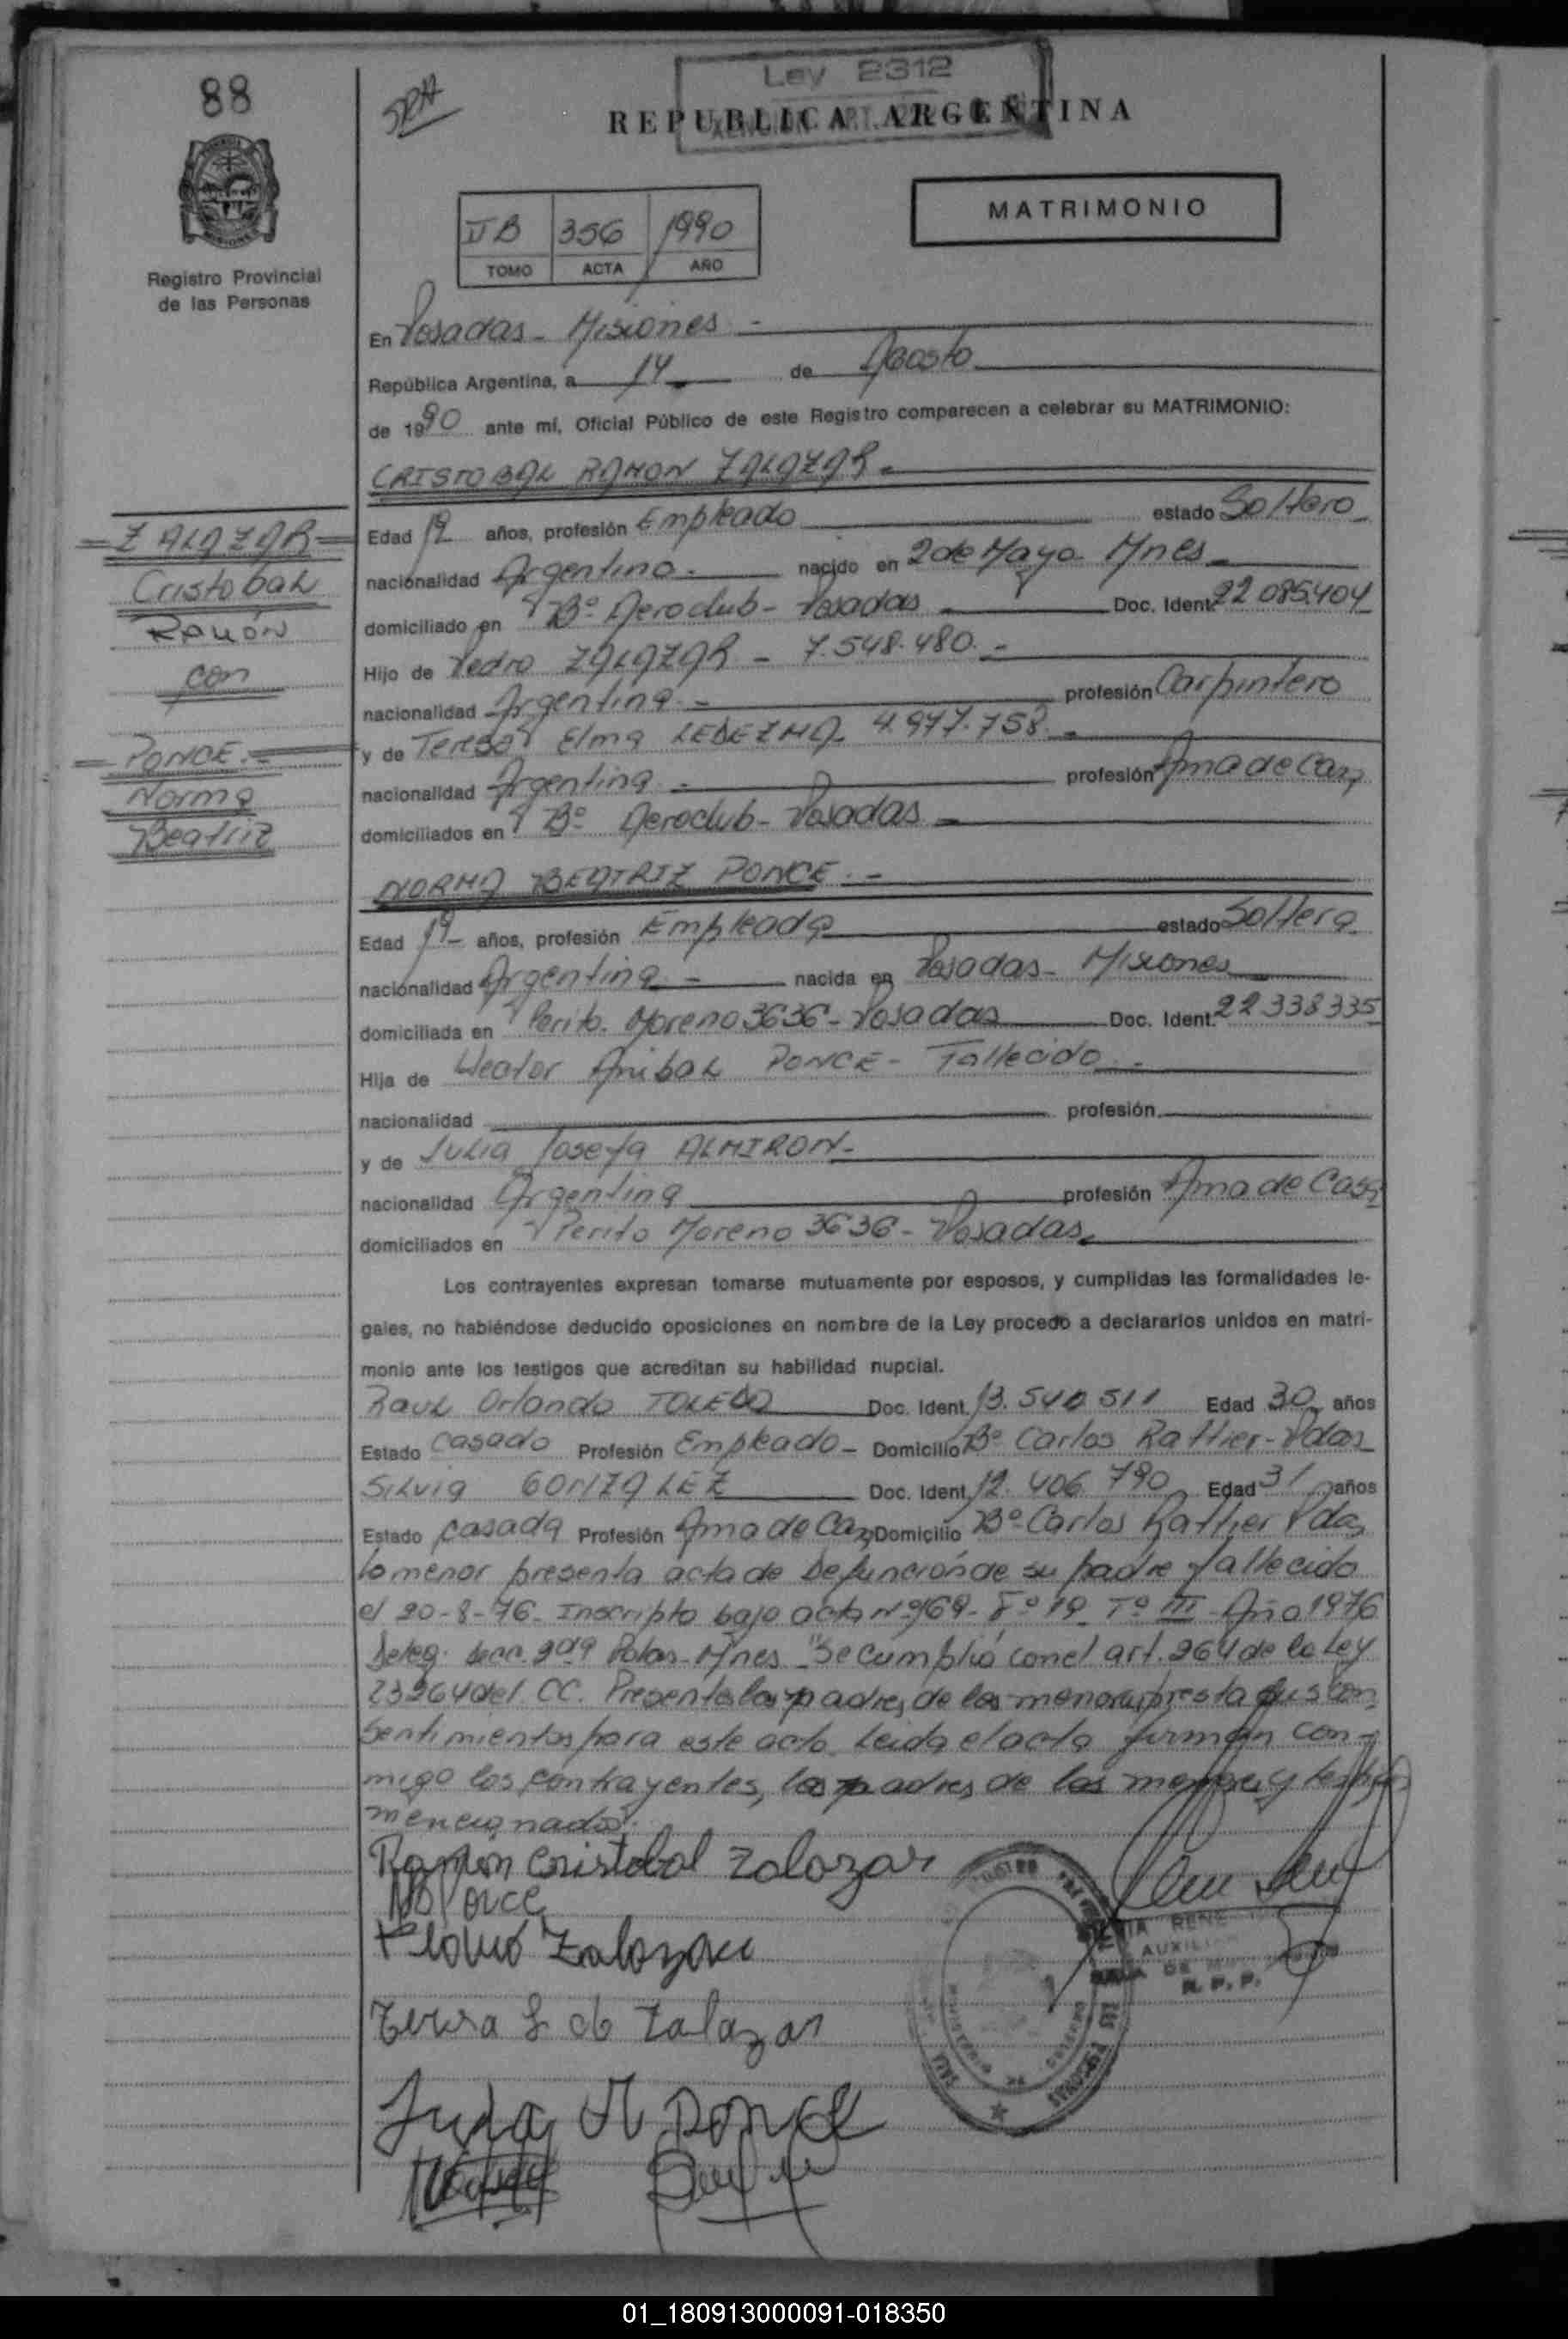 88
Ley 2312
REPUBLICA ARGENTINA
MATRIMONIO
II B 356 1990
TOMO ACTA AÑO
Registro Provincial
de las Personas
En Posadas - Misiones -
República Argentina, a 14 de Agosto
de 1990 ante mí, Oficial Público de este Registro comparecen a celebrar su MATRIMONIO:
CRISTOBAL RAMON ZALAZAR
ZALAZAR
Cristobal
Ramón
con
PONCE.
Norma
Beatriz
Edad 19 años, profesión Empleado estado Soltero
nacionalidad Argentino. nacido en 2 de Mayo Mnes
domiciliado en Bº Aeroclub - Posadas Doc. Ident. 22 085.404
Hijo de Pedro ZALAZAR - 7.548.480. -
nacionalidad Argentina - profesión Carpintero
y de Teresa Elma LEDEZMA 4.977.758. -
nacionalidad Argentina - profesión Ama de Casa
domiciliados en Bº Aeroclub - Posadas
NORMA BEATRIZ PONCE. -
Edad 19 años, profesión Empleada estado Soltera
nacionalidad Argentina - nacida en Posadas - Misiones
domiciliada en Perito Moreno 3636 - Posadas Doc. Ident. 22 338 335
Hija de Hector Anibal PONCE - Fallecido. -
nacionalidad profesión
y de Julia Josefa ALMIRON -
nacionalidad Argentina profesión Ama de Casa
domiciliados en Perito Moreno 3636 - Posadas
Los contrayentes expresan tomarse mutuamente por esposos, y cumplidas las formalidades le-
gales, no habiéndose deducido oposiciones en nombre de la Ley procedo a declararlos unidos en matri-
monio ante los testigos que acreditan su habilidad nupcial.
Raul Orlando TOLEDO Doc. Ident. 13.540 511 Edad 30 años
Estado Casado Profesión Empleado - Domicilio Bº Carlos Rattier - Pdas
Silvia GONZALEZ Doc. Ident. 12.406 790 Edad 31 años
Estado Casada Profesión Ama de Casa Domicilio Bº Carlos Rattier Pdas
La menor presenta acta de Defunción de su padre fallecido
el 20-8-76. Inscripto bajo acta Nº 969 - Fº 19 Tº III - Año 1976
Deleg. Secc. 2da Pdas - Mnes. Se cumplió con el art. 264 de la Ley
23264 del CC. Presentes los padres de los menores presta sus con
sentimientos para este acto. Leida el acta firman con-
migo los contrayentes, los padres de los menores y testigos
mencionados.
Ramon Cristobal Zalazar
NB Ponce
Zalazar
Teresa L de Zalazar
Ponce
AUXILIAR
R. P. P.
01_180913000091-018350